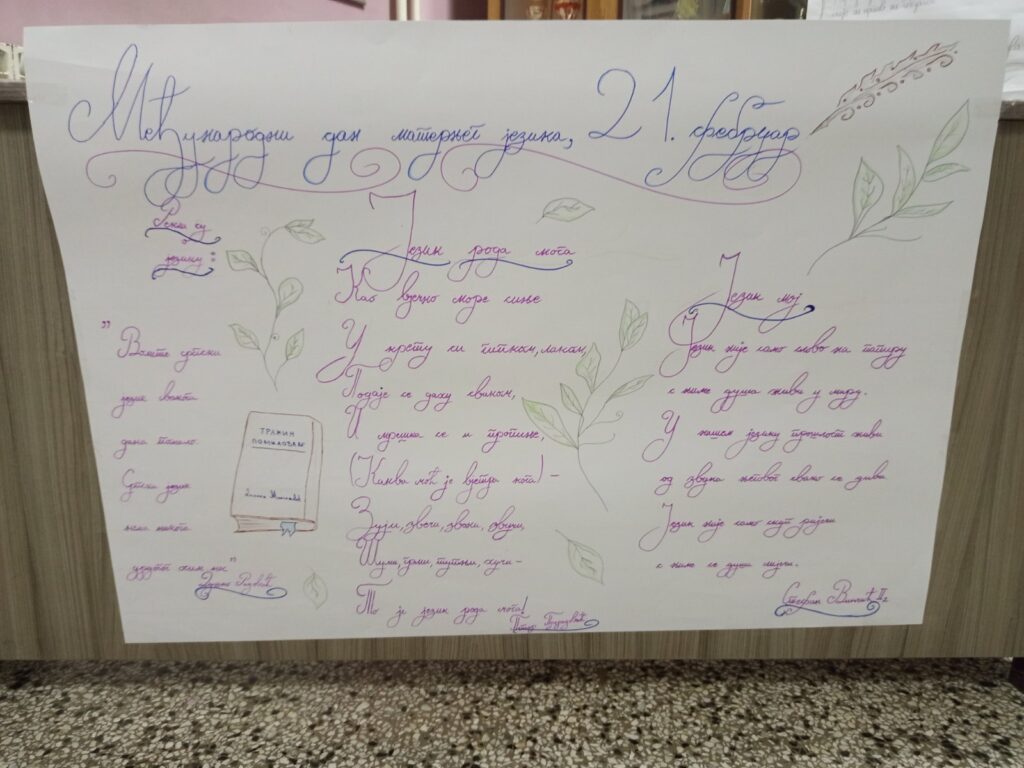 Међународни дан матерњег језика, 21. фебруар
Рекли су
о
језику:
„Волите српски
језик сваког
дана помало.
Српски језик
нема никога
другог осим нас”
Душко Радовић
ТРАЖИМ
ПОМИЛОВАЊЕ
Језик рода мога
Као вјечно море сиње
У крету си гипком, лаком,
Подаје се даху сваком,
И мрешка се и пропиње,
(Каква моћ је вјетра кога) –
Зуји, звечи, звони, звучи,
Шуми, грми, тутњи, хучи –
То је језик рода мога!
Петар Прерадовић
Језик мој
Језик није само слово на папиру
с њиме душа живи у миру.
У нашем језику прошлост живи
од звука његовог свако се диви
Језик није само скуп ријечи
с њиме се душа лијечи.
Стефан II2